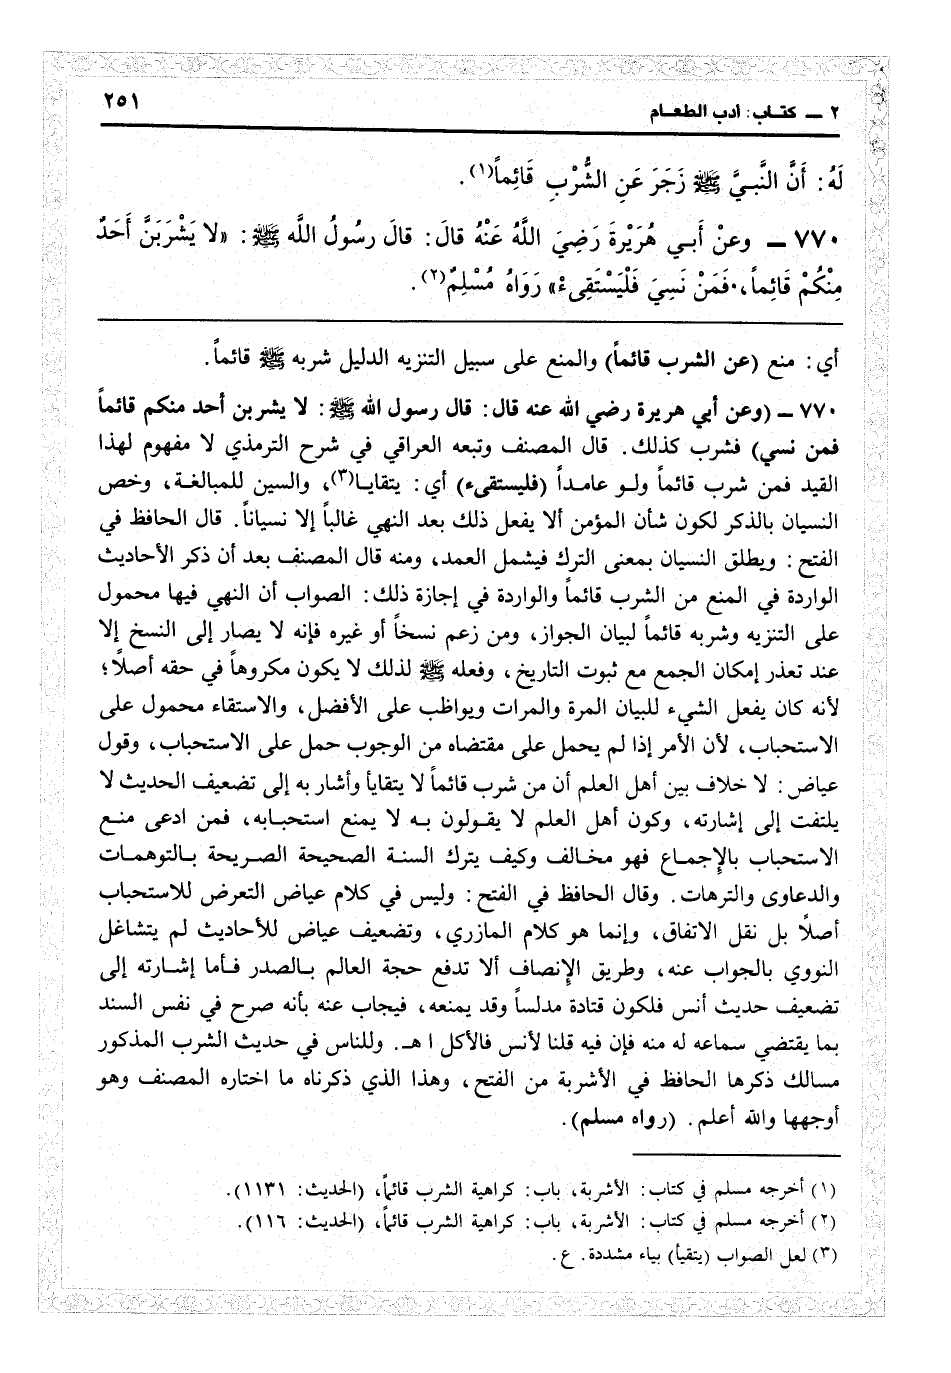 ٢ ــ كتـاب: أدب الطعـام
٢٥١
لَهُ: أَنَّ النَّبيَّ ﷺ زَجَرَ عَنِ الشُّرْبِ قَائِماً(١).
٧٧٠ ــ وعنْ أَبـي هُرَيْرةَ رَضِيَ اللَّهُ عَنْهُ قالَ: قالَ رسُولُ اللَّه ﷺ: «لا يَشْرَبَنَّ أَحَدٌ
مِنْكُمْ قَائِماً، فَمَنْ نَسِيَ فَلْيَسْتَقِىءْ» رَوَاهُ مُسْلِمٌ(٢).
أي: منع (عن الشرب قائماً) والمنع على سبيل التنزيه الدليل شربه ﷺ قائماً.
٧٧٠ ــ (وعن أبي هريرة رضي الله عنه قال: قال رسول الله ﷺ: لا يشربن أحد منكم قائماً
فمن نسي) فشرب كذلك. قال المصنف وتبعه العراقي في شرح الترمذي لا مفهوم لهذا
القيد فمن شرب قائماً ولـو عامـداً (فليستقىء) أي: يتقايـا(٣)، والسين للمبالغـة، وخص
النسيان بالذكر لكون شأن المؤمن ألا يفعل ذلك بعد النهي غالباً إلا نسياناً. قال الحافظ في
الفتح: ويطلق النسيان بمعنى الترك فيشمل العمد، ومنه قال المصنف بعد أن ذكر الأحاديث
الواردة في المنع من الشرب قائماً والواردة في إجازة ذلك: الصواب أن النهي فيها محمول
على التنزيه وشربه قائماً لبيان الجواز، ومن زعم نسخاً أو غيره فإنه لا يصار إلى النسخ إلا
عند تعذر إمكان الجمع مع ثبوت التاريخ، وفعله ﷺ لذلك لا يكون مكروهاً في حقه أصلًا؛
لأنه كان يفعل الشيء للبيان المرة والمرات ويواظب على الأفضل، والاستقاء محمول على
الاستحباب، لأن الأمر إذا لم يحمل على مقتضاه من الوجوب حمل على الاستحباب، وقول
عياض: لا خلاف بين أهل العلم أن من شرب قائماً لا يتقايأ وأشار به إلى تضعيف الحديث لا
يلتفت إلى إشارته، وكون أهل العلم لا يقـولون بـه لا يمنع استحبـابه، فمن ادعى منـع
الاستحباب بالإجمـاع فهو مخـالف وكيف يترك السنـة الصحيحة الصـريحة بـالتوهمـات
والدعاوى والترهات. وقال الحافظ في الفتح: وليس في كلام عياض التعرض للاستحباب
أصلًا بل نقل الاتفاق، وإنما هو كلام المازري، وتضعيف عياض للأحاديث لم يتشاغل
النووي بالجواب عنه، وطريق الإنصاف ألا تدفع حجة العالم بـالصدر فـأما إشـارته إلى
تضعيف حديث أنس فلكون قتادة مدلساً وقد يمنعه، فيجاب عنه بأنه صرح في نفس السند
بما يقتضي سماعه له منه فإن فيه قلنا لأنس فالأكل ا هـ. وللناس في حديث الشرب المذكور
مسالك ذكرها الحافظ في الأشربة من الفتح، وهذا الذي ذكرناه ما اختاره المصنف وهو
أوجهها والله أعلم. (رواه مسلم).
(١) أخرجه مسلم في كتاب: الأشربة، باب: كراهية الشرب قائماً، (الحديث: ١١٣١).
(٢) أخرجه مسلم في كتاب: الأشربة، باب: كراهية الشرب قائماً، (الحديث: ١١٦).
(٣) لعل الصواب (يتقيأ) بياء مشددة. ع.